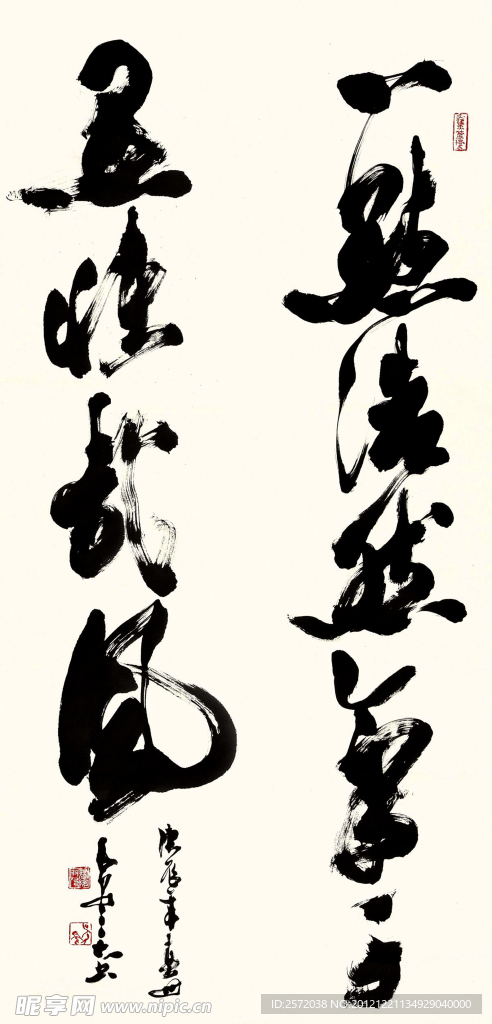 一點浩然氣千
里快哉風
昵享网 www.nipic.cn
ID:2572038 NO:20121221134929040000